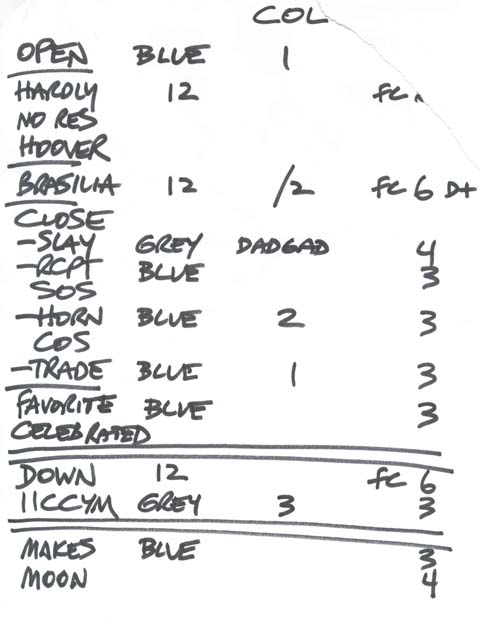 COL
OPEN BLUE 1
HARDLY 12 FC
NO RES
HOOVER
BRASILIA 12 /2 FC 6 D+
CLOSE
-SLAY GREY DADGAD 4
-RCPT BLUE 3
SOS
-HORN BLUE 2 3
COS
-TRADE BLUE 1 3
FAVORITE BLUE 3
CELEBRATED
DOWN 12 FC 6
11CCYM GREY 3 3
MAKES BLUE 3
MOON 4